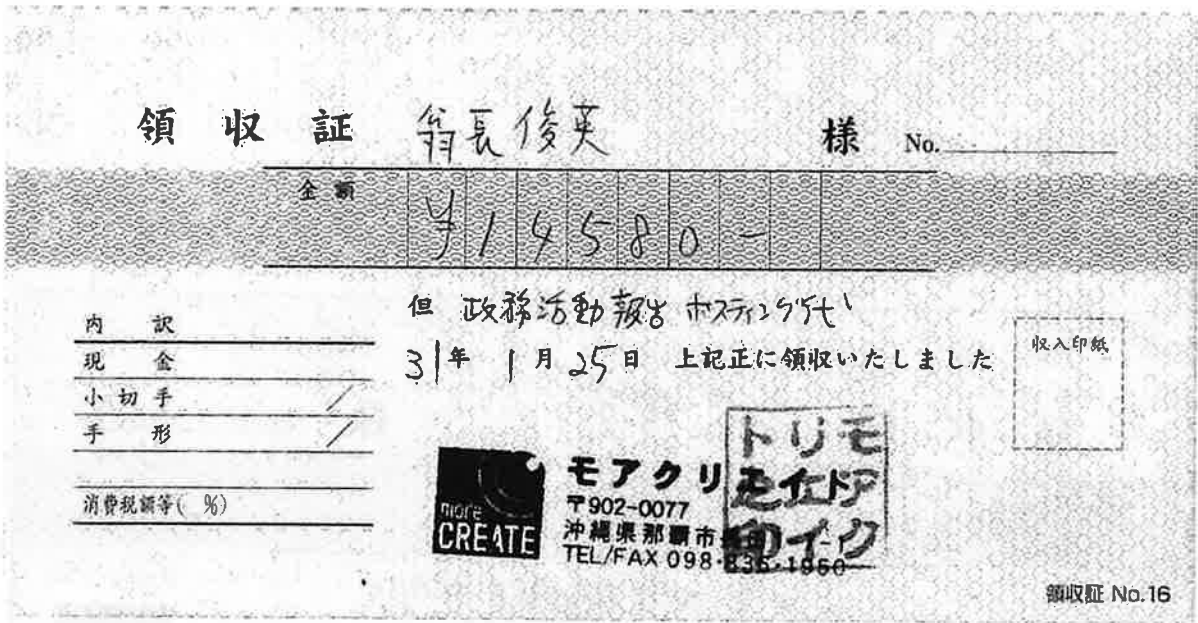 領収証 翁長俊英 様 No.
金額 ¥14580-
但 政務活動報告 ポスティング代
31年 1月 25日 上記正に領収いたしました
内訳
現金
小切手 /
手形 /
消費税額等( %)
収入印紙
more
CREATE
モアクリ
〒902-0077
沖縄県那覇市
TEL/FAX 098-835-1960
領収証 No.16